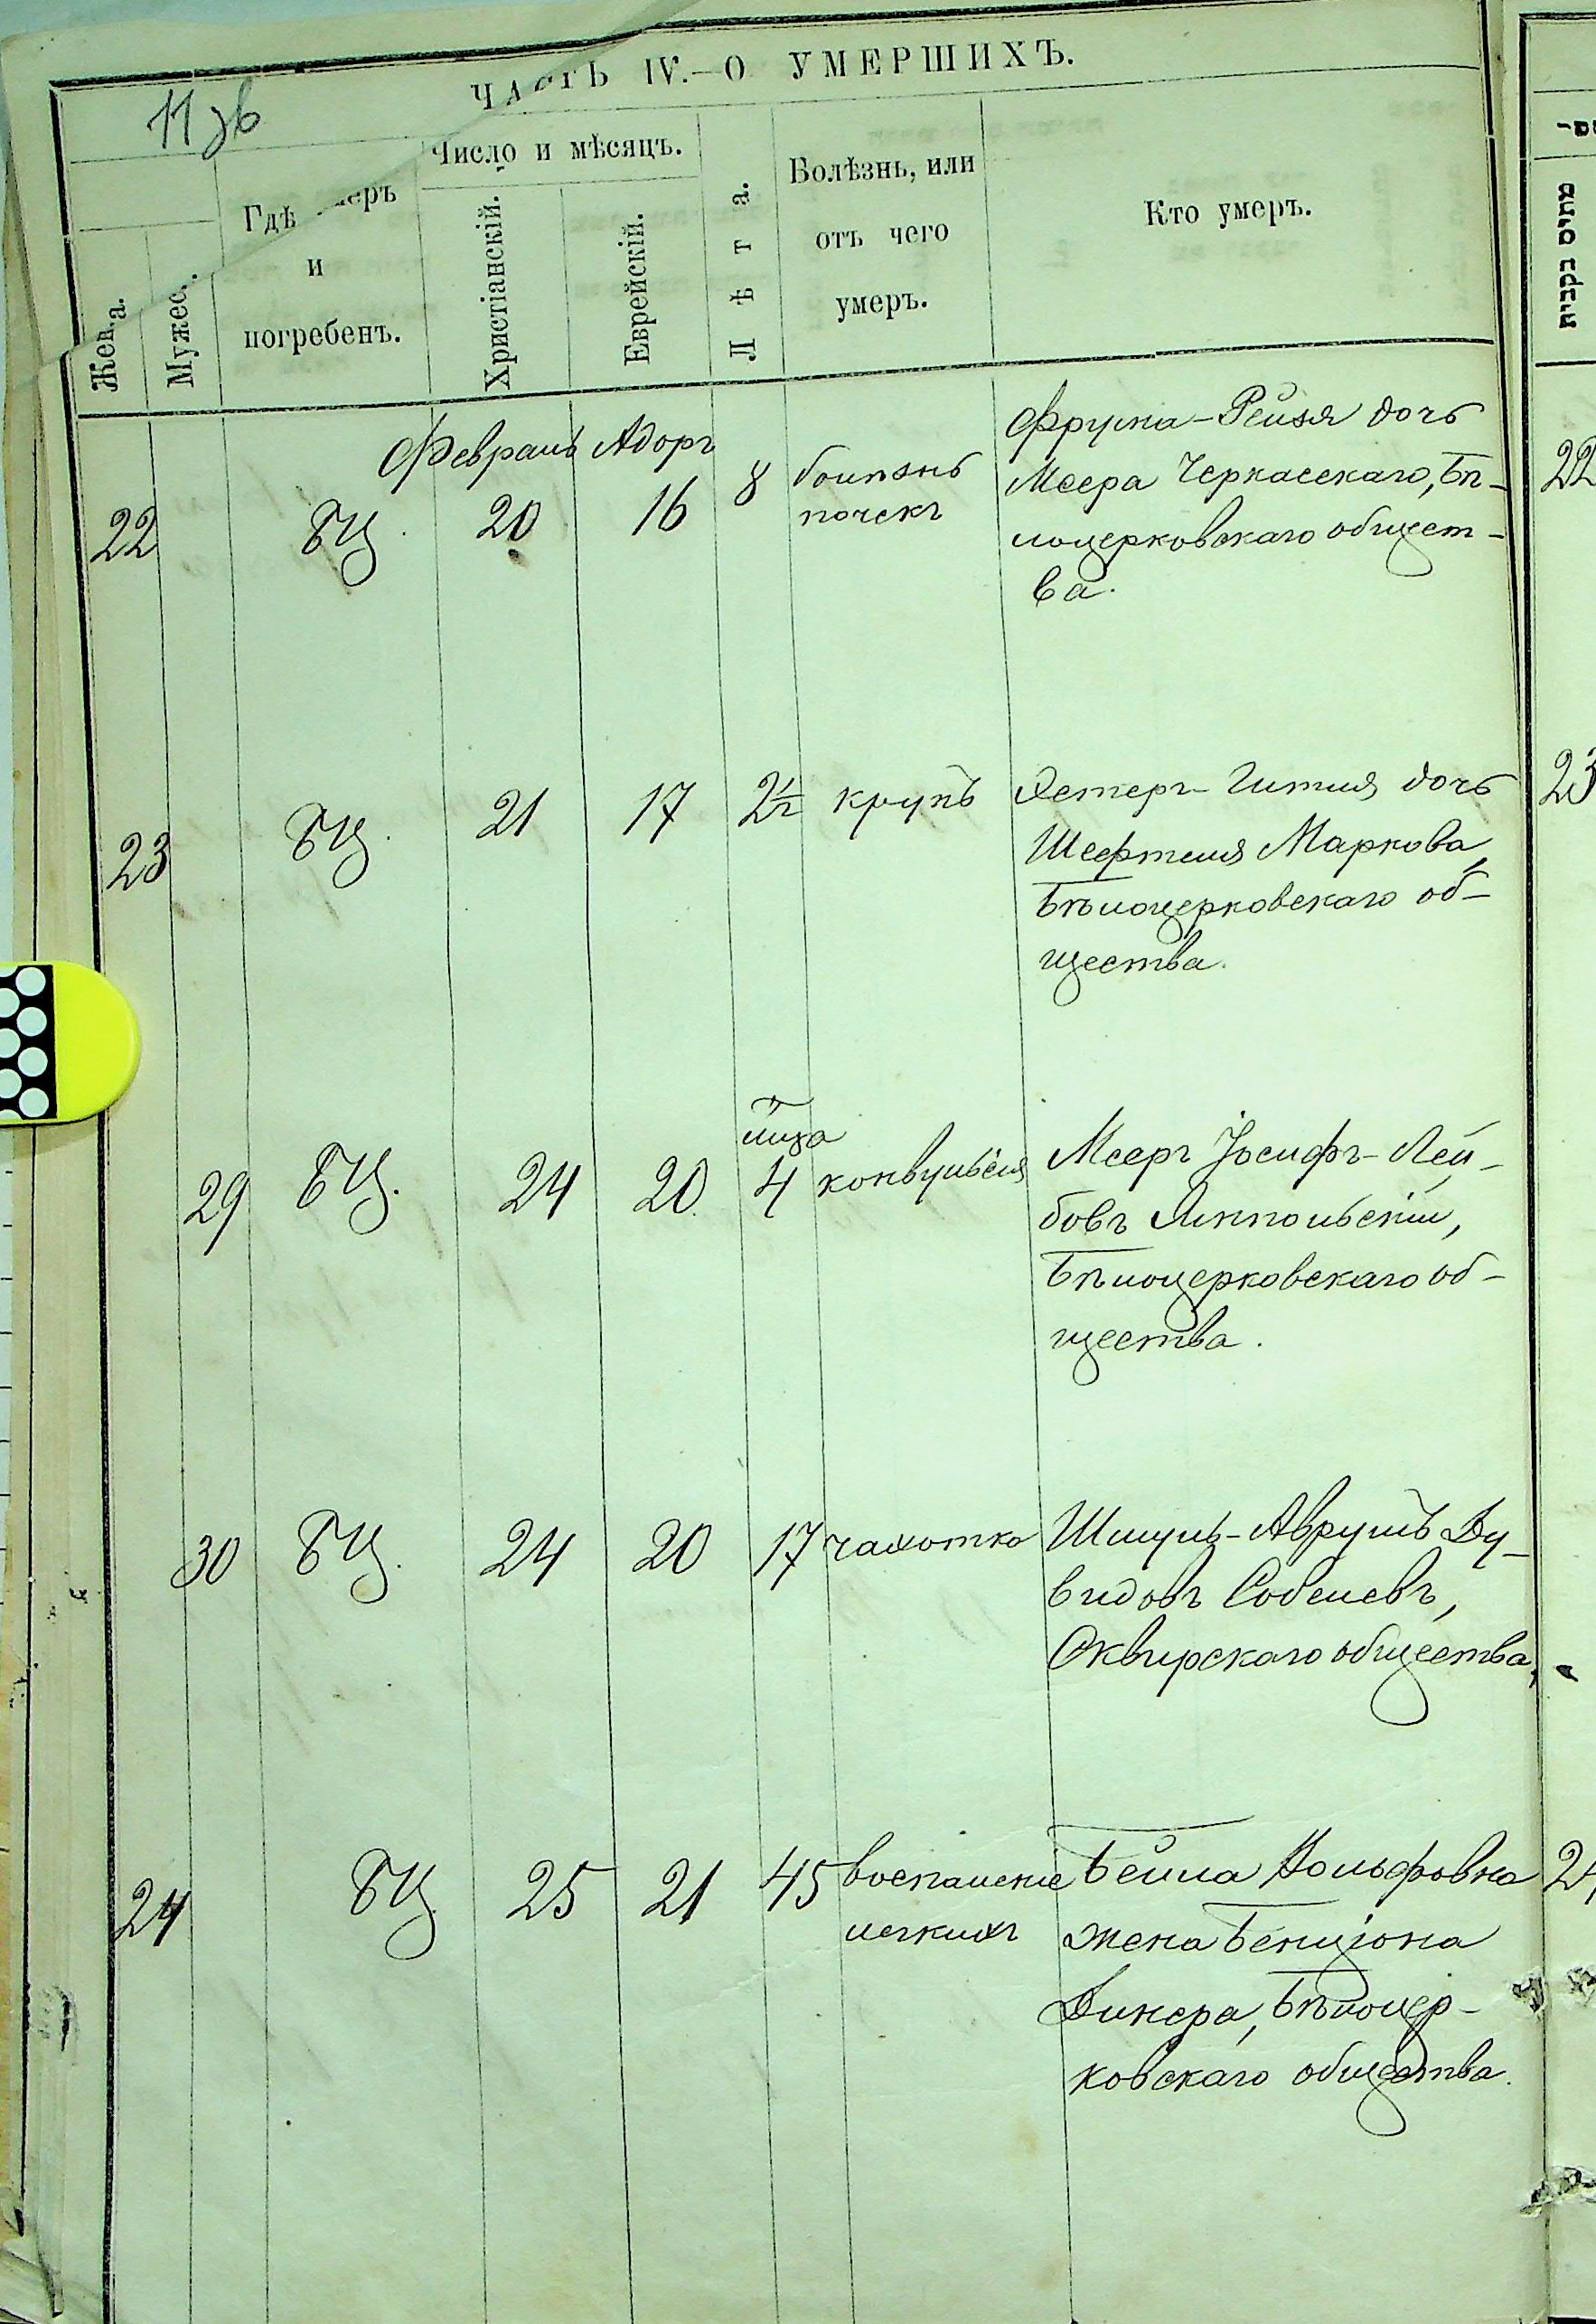 ЧАСТЬ IV.—О УМЕРШИХЪ.
11 зв
Жен. а.
Мужес.
Гдѣ меръ
и
погребенъ.
Число и мѣсяцъ.
Христіанскій.
Еврейскій.
Лѣта.
Болѣзнь, или
отъ чего
умеръ.
Кто умеръ.
מתים נקבות
Февраль Адоръ
22 БЦ. 20 16 8 болѣзнь
почекъ
Фрума-Рейзя дочь
Меера Черкасскаго, Бѣ-
лоцерковскаго общест-
ва.
22
23 БЦ. 21 17 2½ крупъ
Эстеръ-Гитля дочь
Шефтеля Маркова,
Бѣлоцерковскаго об-
щества.
23
29 БЦ. 24 20 м-ца 4 конвульсія
Мееръ Іосифъ-Лей-
бовъ Ямпольскій,
Бѣлоцерковскаго об-
щества.
30 БЦ. 24 20 17 чахотка
Шмуль-Аврумъ Ду-
видовъ Соболевъ,
Сквирскаго общества.
24 БЦ. 25 21 45 воспаленіе
легкихъ
Бейла Вольфовна
жена Бенціона
Динера, Бѣлоцер-
ковскаго общества.
24